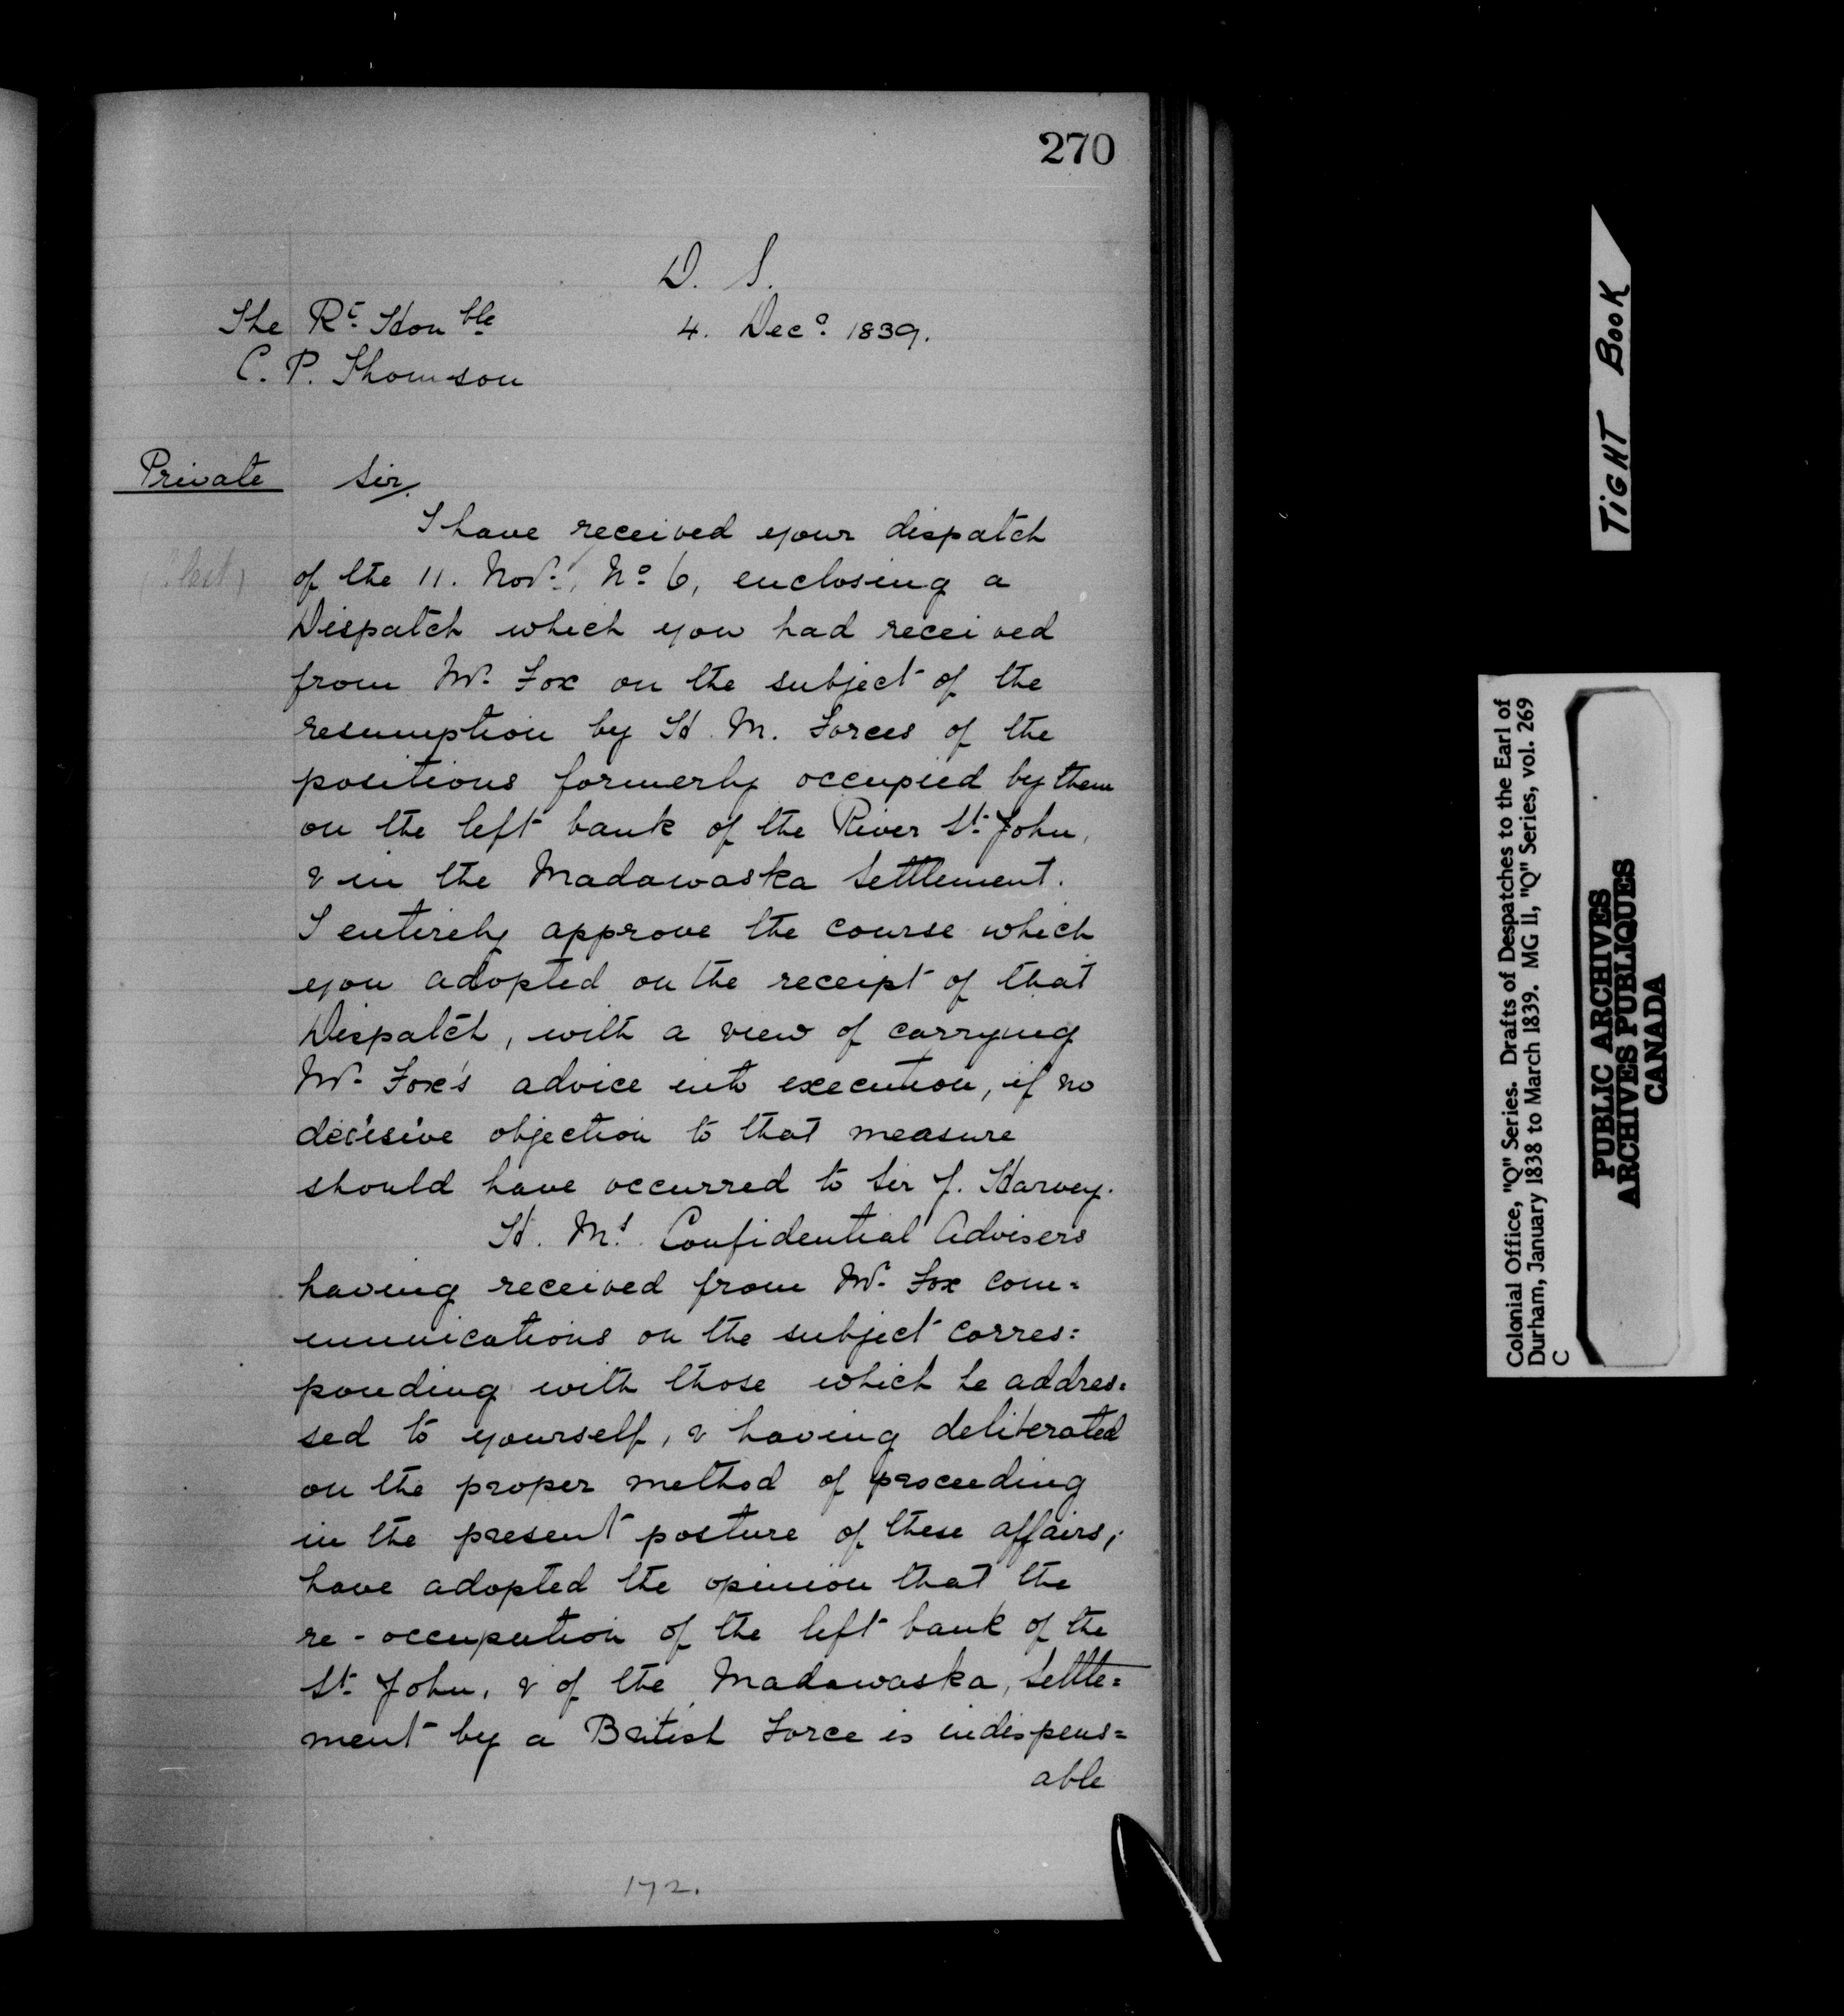 270
D. S.
The Rt. Honble
4. Deco. 1839.
C. P. Thomson
Private
Sir,
I have received your dispatch
of the 11. Novr., No. 6, enclosing a
Dispatch which you had received
from Mr. Fox on the subject of the
resumption by H. M. Forces of the
positions formerly occupied by them
on the left bank of the River St. John,
& in the Madawaska Settlement.
I entirely approve the course which
you adopted on the receipt of that
Dispatch, with a view of carrying
Mr. Fox's advice into execution, if no
decisive objection to that measure
should have occurred to Sir J. Harvey.
H. M's. Confidential Advisers
having received from Mr. Fox com=
munications on the subject corres=
ponding with those which he addres=
sed to yourself, & having deliberated
on the proper method of proceeding
in the present posture of these affairs,
have adopted the opinion that the
re-occupation of the left bank of the
St. John, & of the Madawaska, Settle=
ment by a British Force is indispens=
able
172.
TIGHT BOOK
Colonial Office, "Q" Series. Drafts of Despatches to the Earl of
Durham, January 1838 to March 1839. MG 11, "Q" Series, vol. 269
C
PUBLIC ARCHIVES
ARCHIVES PUBLIQUES
CANADA